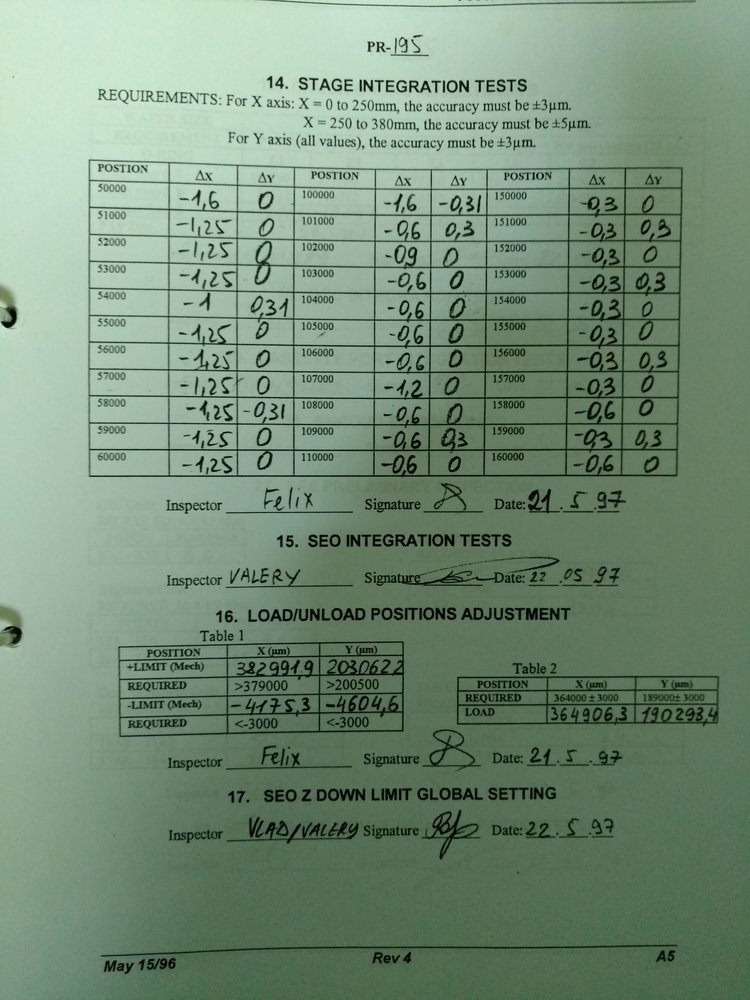 PR-195
14. STAGE INTEGRATION TESTS
REQUIREMENTS: For X axis: X = 0 to 250mm, the accuracy must be ±3µm.
X = 250 to 380mm, the accuracy must be ±5µm.
For Y axis (all values), the accuracy must be ±3µm.
POSTION ΔX ΔY POSTION ΔX ΔY POSTION ΔX ΔY
50000 -1,6 0 100000 -1,6 -0,31 150000 -0,3 0
51000 -1,25 0 101000 -0,6 0,3 151000 -0,3 0,3
52000 -1,25 0 102000 -0,9 0 152000 -0,3 0
53000 -1,25 0 103000 -0,6 0 153000 -0,3 0,3
54000 -1 0,31 104000 -0,6 0 154000 -0,3 0
55000 -1,25 0 105000 -0,6 0 155000 -0,3 0
56000 -1,25 0 106000 -0,6 0 156000 -0,3 0,3
57000 -1,25 0 107000 -1,2 0 157000 -0,3 0
58000 -1,25 -0,31 108000 -0,6 0 158000 -0,6 0
59000 -1,25 0 109000 -0,6 0,3 159000 -0,3 0,3
60000 -1,25 0 110000 -0,6 0 160000 -0,6 0
Inspector Felix Signature Date: 21.5.97
15. SEO INTEGRATION TESTS
Inspector VALERY Signature Date: 22 .05 97
16. LOAD/UNLOAD POSITIONS ADJUSTMENT
Table 1
POSITION X (µm) Y (µm)
+LIMIT (Mech) 382991,9 203062,2
REQUIRED >379000 >200500
-LIMIT (Mech) -4175,3 -4604,6
REQUIRED <-3000 <-3000
Table 2
POSITION X (µm) Y (µm)
REQUIRED 364000 ± 3000 189000± 3000
LOAD 364906,3 190293,4
Inspector Felix Signature Date: 21.5.97
17. SEO Z DOWN LIMIT GLOBAL SETTING
Inspector VLAD/VALERY Signature Date: 22.5.97
May 15/96 Rev 4 A5